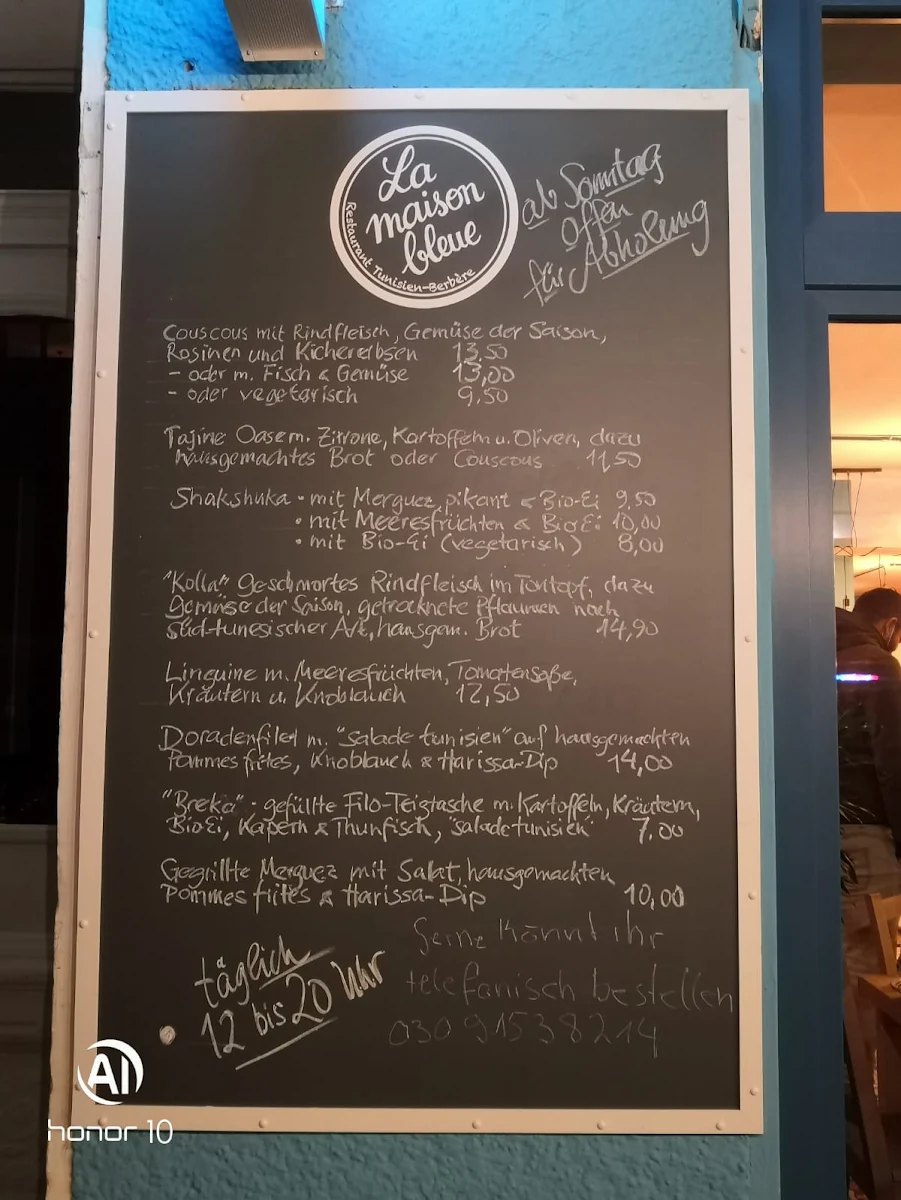 La
maison
bleue
Restaurant Tunisien-Berbère
ab Sonntag
offen
für Abholung
Couscous mit Rindfleisch, Gemüse der Saison,
Rosinen und Kichererbsen 13.50
- oder m. Fisch & Gemüse 13,00
- oder vegetarisch 9.50
Tajine Oase m. Zitrone, Kartoffeln u. Oliven, dazu
hausgemachtes Brot oder Couscous 11,50
Shakshuka • mit Merguez, pikant & Bio-Ei 9,50
• mit Meeresfrüchten & Bio Ei 10,00
• mit Bio-Ei (vegetarisch) 8,00
"Kolla" geschmortes Rindfleisch im Tontopf, dazu
Gemüse der Saison, getrocknete Pflaumen nach
süd-tunesischer Art, hausgem. Brot 14,90
Linguine m. Meeresfrüchten, Tomatensoße,
Kräutern u. Knoblauch 12,50
Doradenfilet m. "salade tunisien" auf hausgemachten
Pommes frites, Knoblauch & Harissa-Dip 14,00
"Breka" - gefüllte Filo-Teigtasche m. Kartoffeln, Kräutern,
Bio Ei, Kapern & Thunfisch, "salade tunisien" 7.00
Gegrillte Merguez mit Salat, hausgemachten
Pommes frites & Harissa-Dip 10,00
täglich
12 bis 20 Uhr
Gerne könnt ihr
telefonisch bestellen
030 91538214
AI
honor 10